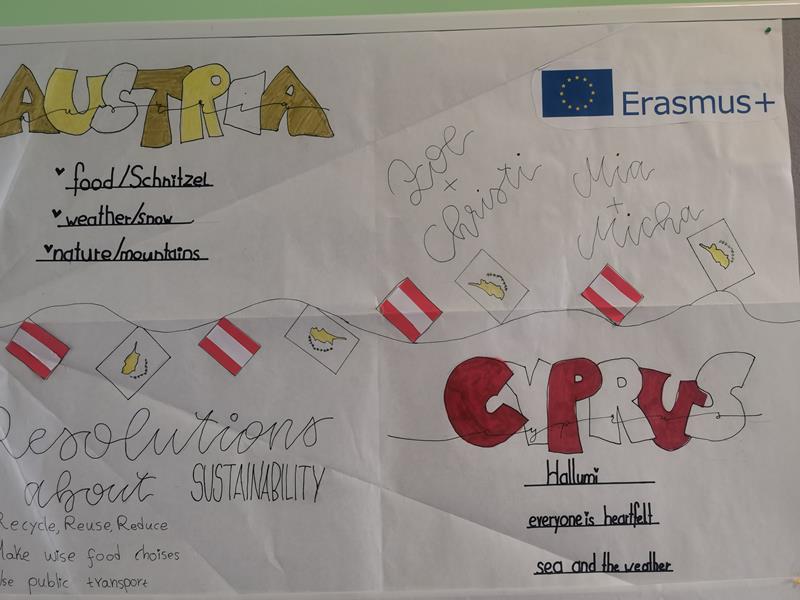 AUSTRIA
food/Schnitzel
weather/snow
nature/mountains
Erasmus+
Zoe
+
Christi
Mia
+
Micha
CYPRUS
Hallumi
everyone is heartfelt
sea and the weather
Resolutions
about SUSTAINABILITY
Recycle, Reuse, Reduce
Make wise food choises
Use public transport